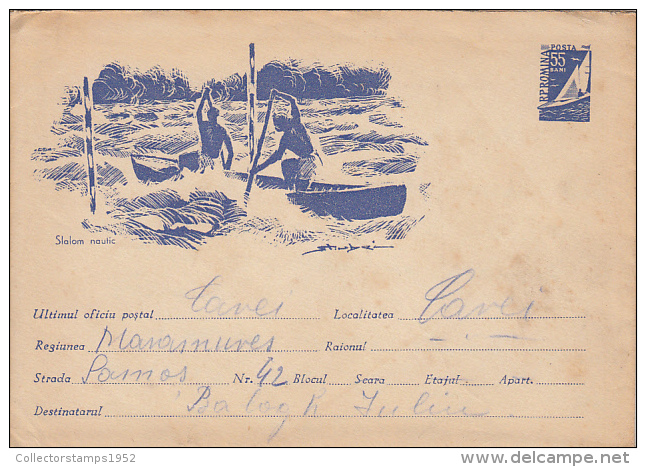 POSTA
55
BANI
R.P.ROMINA
Slalom nautic
Ultimul oficiu poștal Carei Localitatea Carei
Regiunea Maramures Raionul
Strada Somos Nr. 42 Blocul Scara Etajul Apart.
Destinatarul Balogh Iuliu
Collectorstamps1952
delcampe.net